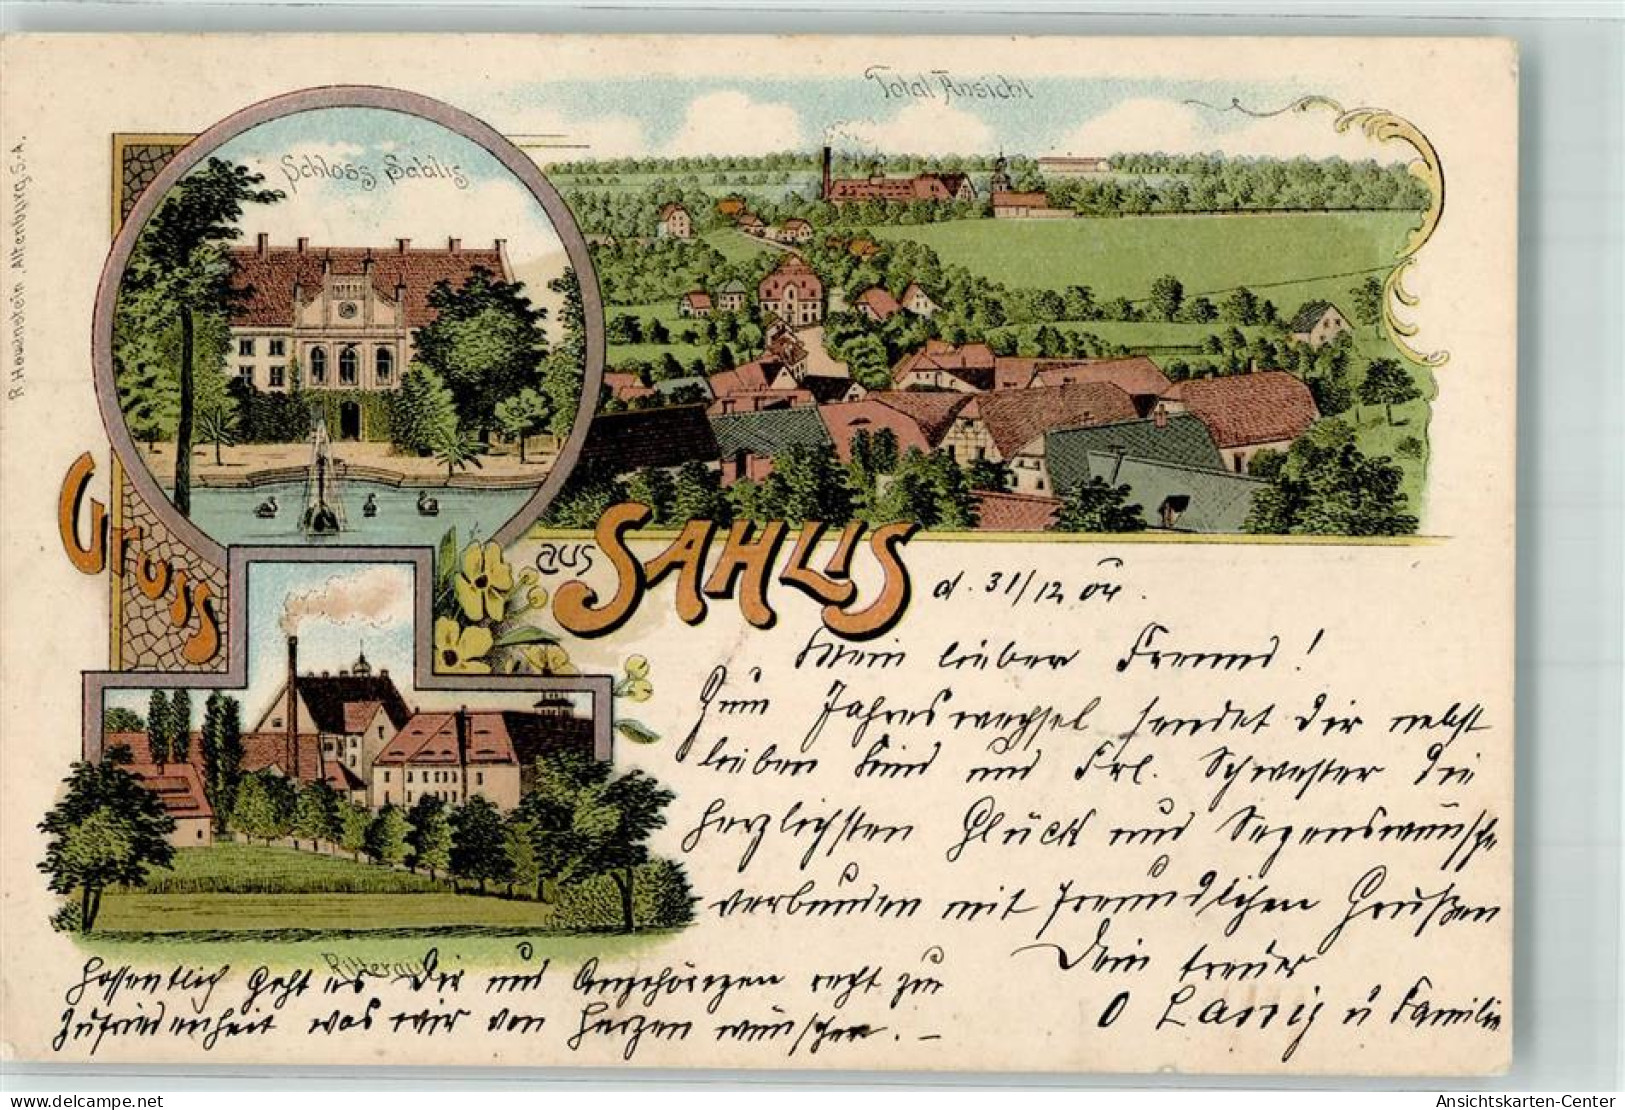 R. Hauenstein, Altenburg, S.-A.
Schloss Sahlis
Total Ansicht
Gruss aus SAHLIS
Rittergut
d. 31/12 04.
Mein lieber Freund!
Zum Jahreswechsel sendet Dir nebst
lieben Kind und Frl. Schwester die
herzlichsten Glück und Segenswünsche
verbunden mit freundlichen Grüßen
Dein treuer
O und Familie
Hoffentlich geht es Dir und Angehörigen recht zur
Zufriedenheit was wir von Herzen wünschen. –
delcampe.net
Ansichtskarten-Center